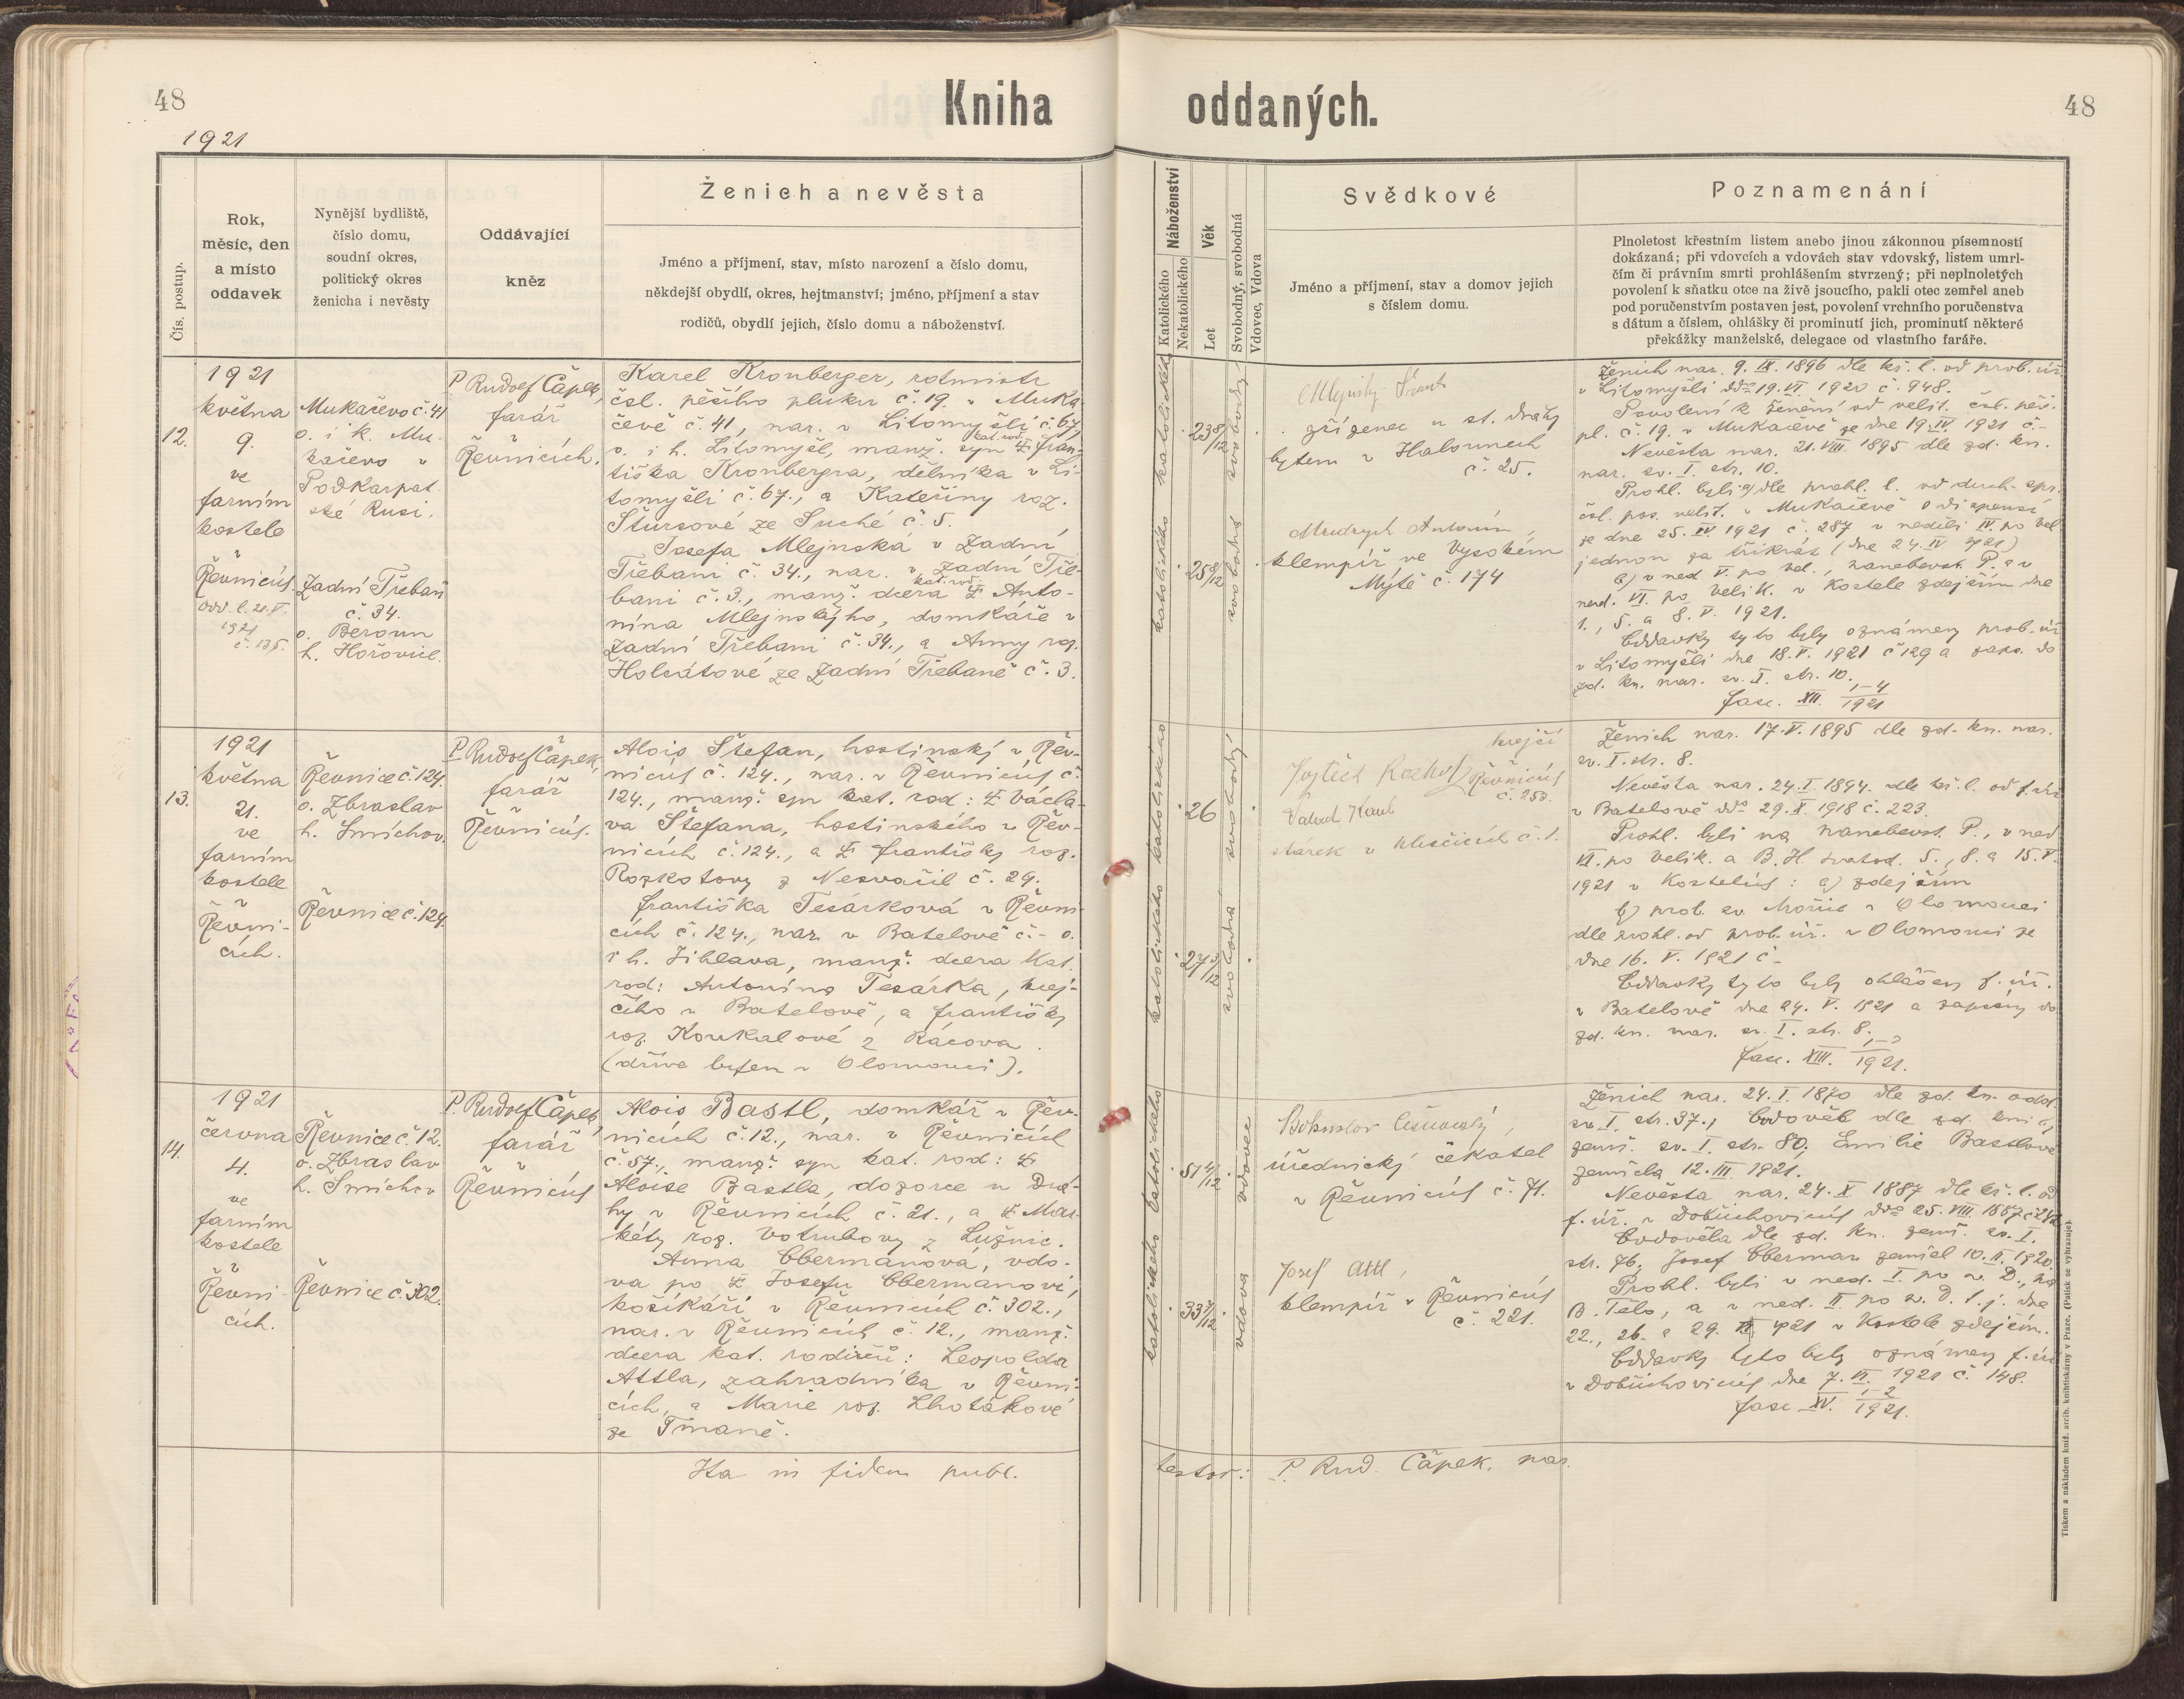 48
Kniha oddaných.
48
1921
Čís. postup.
Rok,
měsíc, den
a místo
oddavek
Nynější bydliště,
číslo domu,
soudní okres,
politický okres
ženicha i nevěsty
Oddávající
kněz
Ženich a nevěsta
Jméno a příjmení, stav, místo narození a číslo domu,
někdejší obydlí, okres, hejtmanství; jméno, příjmení a stav
rodičů, obydlí jejich, číslo domu a náboženství.
Náboženství
Katolického
Nekatolického
Věk
Let
Svobodný, svobodná
Vdovec, Vdova
Svědkové
Jméno a příjmení, stav a domov jejich
s číslem domu.
Poznamenání
Plnoletost křestním listem anebo jinou zákonnou písemností
dokázaná; při vdovcích a vdovách stav vdovský, listem umrl-
čím či právním smrti prohlášením stvrzený; při neplnoletých
povolení k sňatku otce na živě jsoucího, pakli otec zemřel aneb
pod poručenstvím postaven jest, povolení vrchního poručenstva
s dátum a číslem, ohlášky či prominutí jich, prominutí některé
překážky manželské, delegace od vlastního faráře.
12.
1921
května
9.
ve
farním
kostele
v
Řevnicích.
odd. l. 21. V.
1921
č. 135.
Mukačevo č. 41
o. i k. Mu-
kačevo v
Podkarpat.
ské Rusi.
Zadní Třebaň
č. 34.
o. Beroun
h. Hořovice.
P. Rudolf Čapek,
farář
v
Řevnicích.
Karel Kronberger, rotmistr
čsl. pěšího pluku č. 19. v Muka-
čevě č. 41, nar. v Litomyšli č. 67,
o. i h. Litomyšl, manž. syn kat. rod. Fran-
tiška Kronbergra, dělníka v Li-
tomyšli č. 67., a Kateřiny roz.
Štursové ze Suché č. 5.
Josefa Mlejnská v Zadní
Třebani č. 34., nar. v Zadní Tře-
bani č. 3., manž. dcera kat. rod. Anto-
nína Mlejnského, domkáře v
Zadní Třebani č. 34., a Anny roz.
Holcátové ze Zadní Třebaně č. 3.
katolického katolického
23 8/12
25 8/12
svobodná svobodný
Mlejnský
zřízenec u st. dráhy
bytem v Halounech
č. 25.
Mudrych Antonín,
klempíř, ve Vysokém
Mýtě č. 174
Ženich nar. 9. IX. 1896 dle kř. l. od prob. úř.
v Litomyšli ddo 19. VI. 1920 č. 948.
Povolení k ženění od velit. čsl. pěš.
pl. č. 19. v Mukačevě ze dne 19. IV. 1921 č.-
Nevěsta nar. 21. VIII. 1895 dle zd. kn.
nar. sv. I. str. 10.
Prohl. byli a) dle prohl. l. od duch. spr.
čsl. pos. velit. v Mukačevě o dispensi
ze dne 25. IV. 1921 č. 287 v neděli IV. po vel.
jednou za třikrát (dne 24. IV 1921)
b) v ned V. po vel., nanebevst. P. a v
ned. VI. po velik. v kostele zdejším dne
1., 5. a 8. V. 1921.
Oddavky tyto byly oznámeny prob. úř.
v Litomyšli dne 18. V. 1921 č 129 a zaps. do
zd. kn. nar. sv. I. str. 10.
fasc. XII. 1-4/1921
13.
1921
května
21.
ve
farním
kostele
v
Řevni-
cích.
Řevnice č. 124.
o. Zbraslav
h. Smíchov.
Řevnice č. 124.
P. Rudolf Čapek,
farář
v
Řevnicích.
Alois Štefan, hostinský v Řev-
nicích č. 124., nar. v Řevnicích č.
124., manž. syn kat. rod: Václa-
va Štefana, hostinského v Řev-
nicích č. 124., a Františky roz.
Rozkotovy z Nesvačil č. 29.
Františka Tesárková v Řevni-
cích č. 124., nar. v Batelově č.- o.
i h. Jihlava, manž. dcera kat.
rod: Antonína Tesárka, krej-
čího v Batelově, a Františky
roz. Koukalové z Rácova.
(dříve bytem v Olomouci).
katolického katolického
26
27 3/12
svobodná svobodný
krejčí
Vojtěch v Řevnicích
č. 253.
stárek v
č. 1.
Ženich nar. 17. V. 1895 dle zd. kn. nar.
sv. I. str. 8.
Nevěsta nar. 24. I. 1894. dle kř. l. od f. úř.
v Batelově ddo 29. X. 1918 č. 223.
Prohl. byli na nanebevst. P., v ned
VI. po velik. a B. H. svatod. 5., 8. a 15. V.
1921 v kostelích: a) zdejším
b) prob. sv. Mořic v Olomouci
dle prohl. od prob. úř. v Olomouci ze
dne 16. V. 1921 č -
Oddavky tyto byly ohlášeny f. úř.
v Batelově dne 24. V. 1921 a zapsány do
zd. kn. nar. sv. I. str. 8.
fasc. XIII. 1921.
14.
1921
června
4.
ve
farním
kostele
v
Řevni-
cích.
Řevnice č. 12.
o. Zbraslav
h. Smíchov
Řevnice č. 302.
P. Rudolf Čapek,
farář
v
Řevnicích
Alois Bastl, domkář v Řev-
nicích č. 12., nar. v Řevnicích
č. 57., manž. syn kat. rod:
Aloise Bastla, dozorce u Drá-
hy v Řevnicích č. 21., a Mar-
kéty roz. Votrubovy z Lužnic.
Anna Obermanová, vdo-
va po Josefu Obermanovi,
košíkáři v Řevnicích č. 302.,
nar. v Řevnicích č. 12., manž.
dcera kat. rodičů: Leopolda
Attla, zahradníka v Řevni-
cích, a Marie roz. Lhotákové
ze Tmaně.
katolického katolického
51 4/12
33 7/12
vdova vdovec
Bohuslav
úřednický čekatel
v Řevnicích č. 71.
Josef Attl,
klempíř v Řevnicích
č. 221.
Ženich nar. 24. I. 1870 dle zd. kn. odd.
sv. I. str. 37., Ovdověl dle zd. knihy
zemř. sv. I. str. 80, Emilie Bastlová
zemřela 12. III. 1921.
Nevěsta nar. 24. X 1887 dle kř. l. od
f. úř. v Dobřichovicích ddo 25. VIII. 1887
Ovdověla dle zd. kn. zemř. sv. I.
str. 76. Josef Oberman zemřel 10. II. 1920.
Prohl. byli v ned. I. po sv. D., na
B. Tělo, a v ned. II po sv. D. t. j. dne
22., 26. a 29. 1921 v kostele zdejším.
Oddavky tyto byly oznámeny f. úř.
v Dobřichovicích dne 7. VI. 1921 č. 148.
fasc XIV. 1-2/1921.
Ita in fidem publ. testor: P. Rud. Čapek, par.
Tiskem a nákladem kníž. arcib. knihtiskárny v Praze. (Patisk se vyhrazuje).